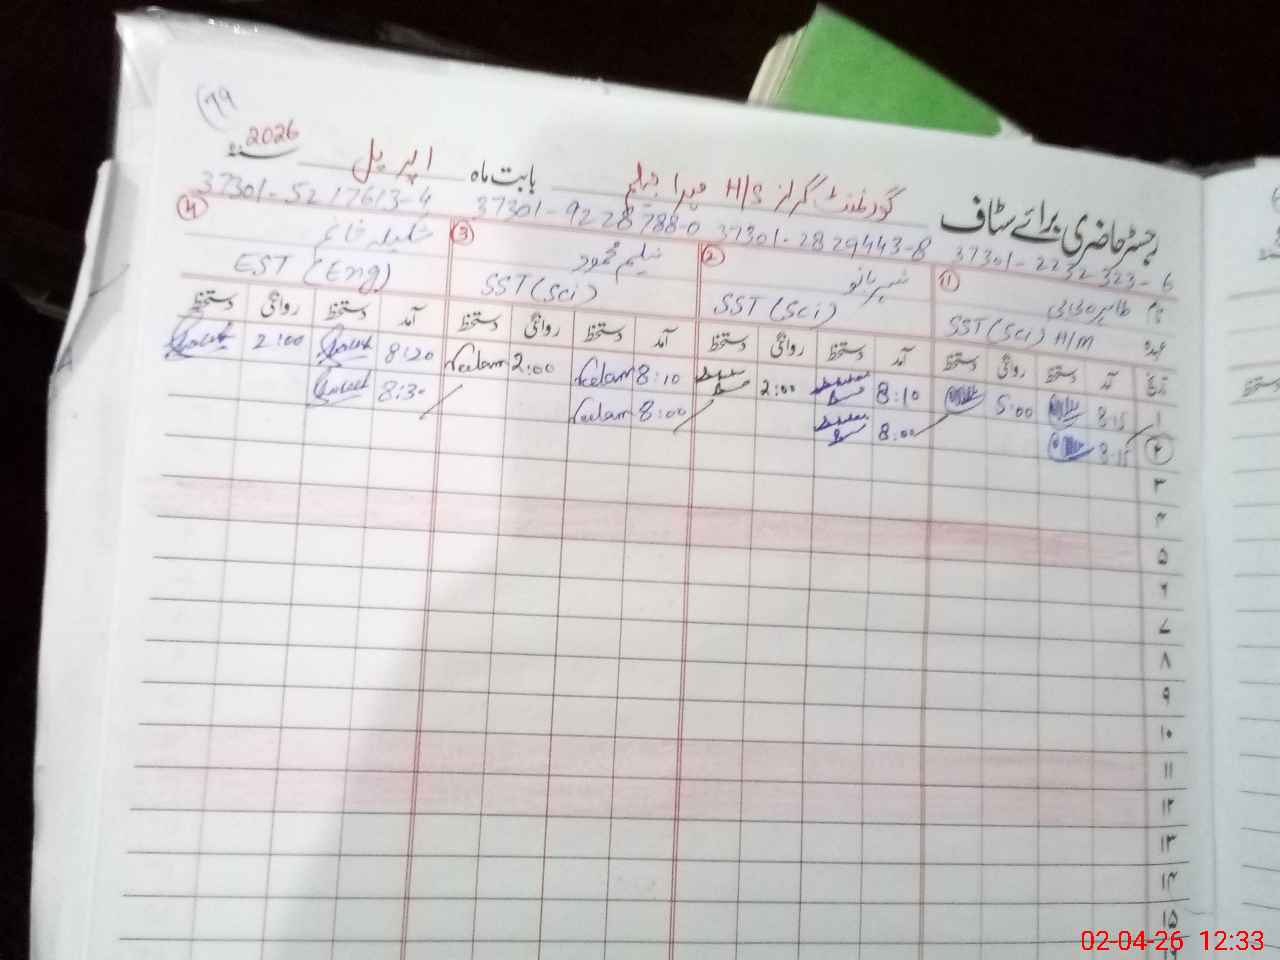 79
رجسٹر حاضری برائے سٹاف گورنمنٹ گرلز H/S میرا جہلم بابت ماہ اپریل سنہ 2026
37301-2252323-6 37301-2829443-8 37301-9228788-0 37301-5217613-4
1 2 3 4
نام شہر بانو نیلم محمود شکیلہ خانم
عہدہ SST (Sci) H/M SST (Sci) SST (Sci) EST (Eng)
تاریخ آمد دستخط روانگی دستخط آمد دستخط روانگی دستخط آمد دستخط روانگی دستخط آمد دستخط روانگی دستخط
۱ 8:15 5:00 8:10 2:00 8:10 Neelam 2:00 Neelam 8:20 2:00
۲ 8:15 8:00 8:00 Neelam 8:30
۳
۴
۵
۶
۷
۸
۹
۱۰
۱۱
۱۲
۱۳
۱۴
۱۵
02-04-26 12:33